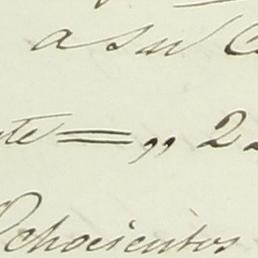 a su C
nte = ,, 22
Ochocientos